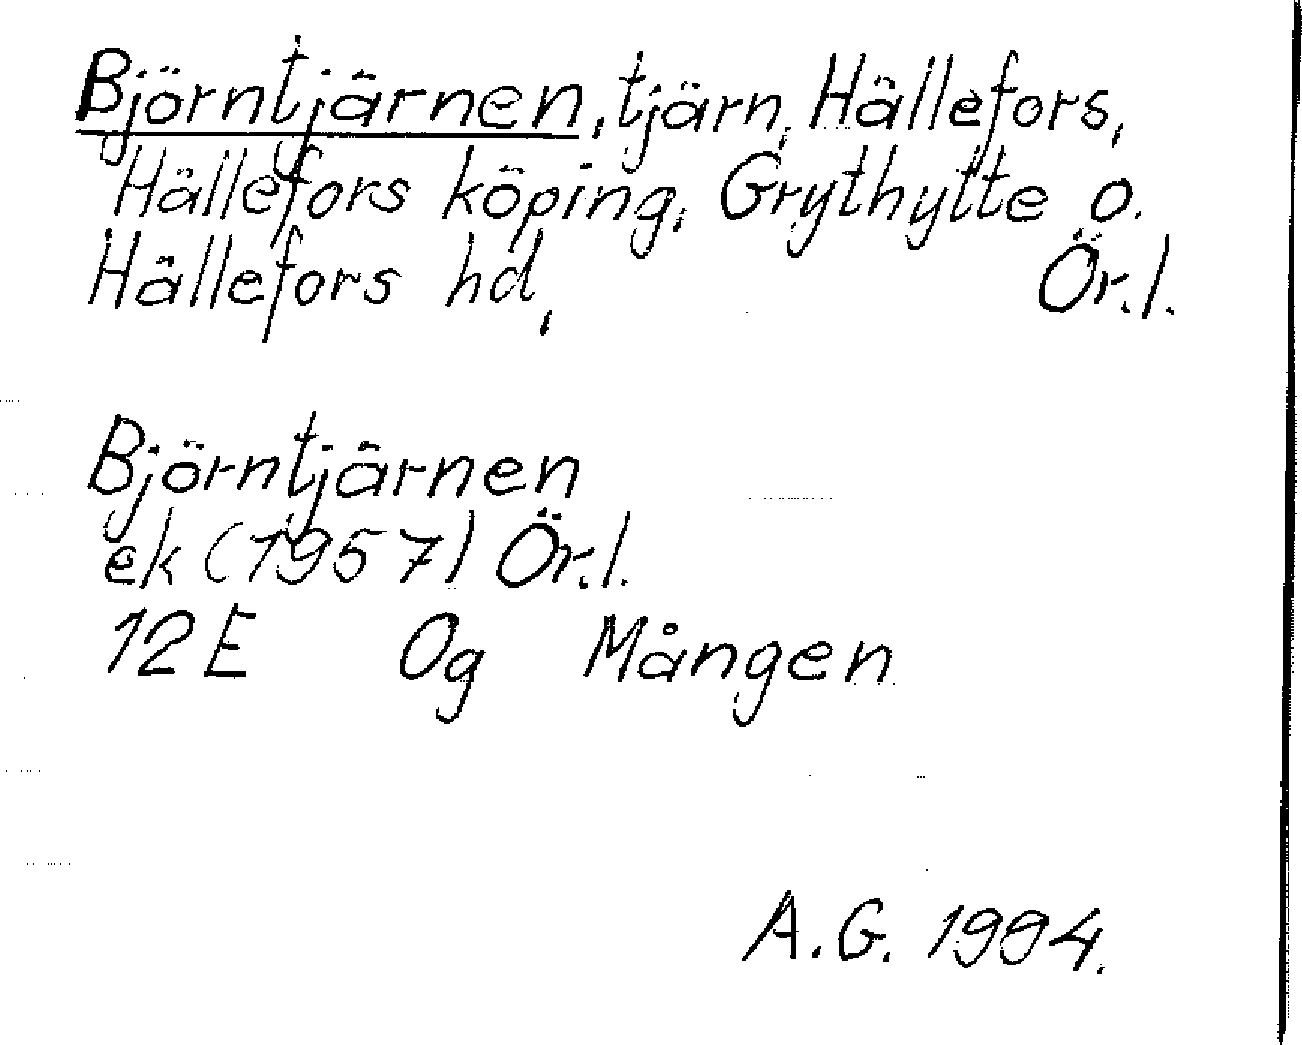 Björntjärnen, tjärn, Hällefors,
Hällefors köping, Grythytte o.
Hällefors hd, Ör.l.
Björntjärnen
ek (1957) Ör.l.
12 E Og Mången
A.G. 1994.